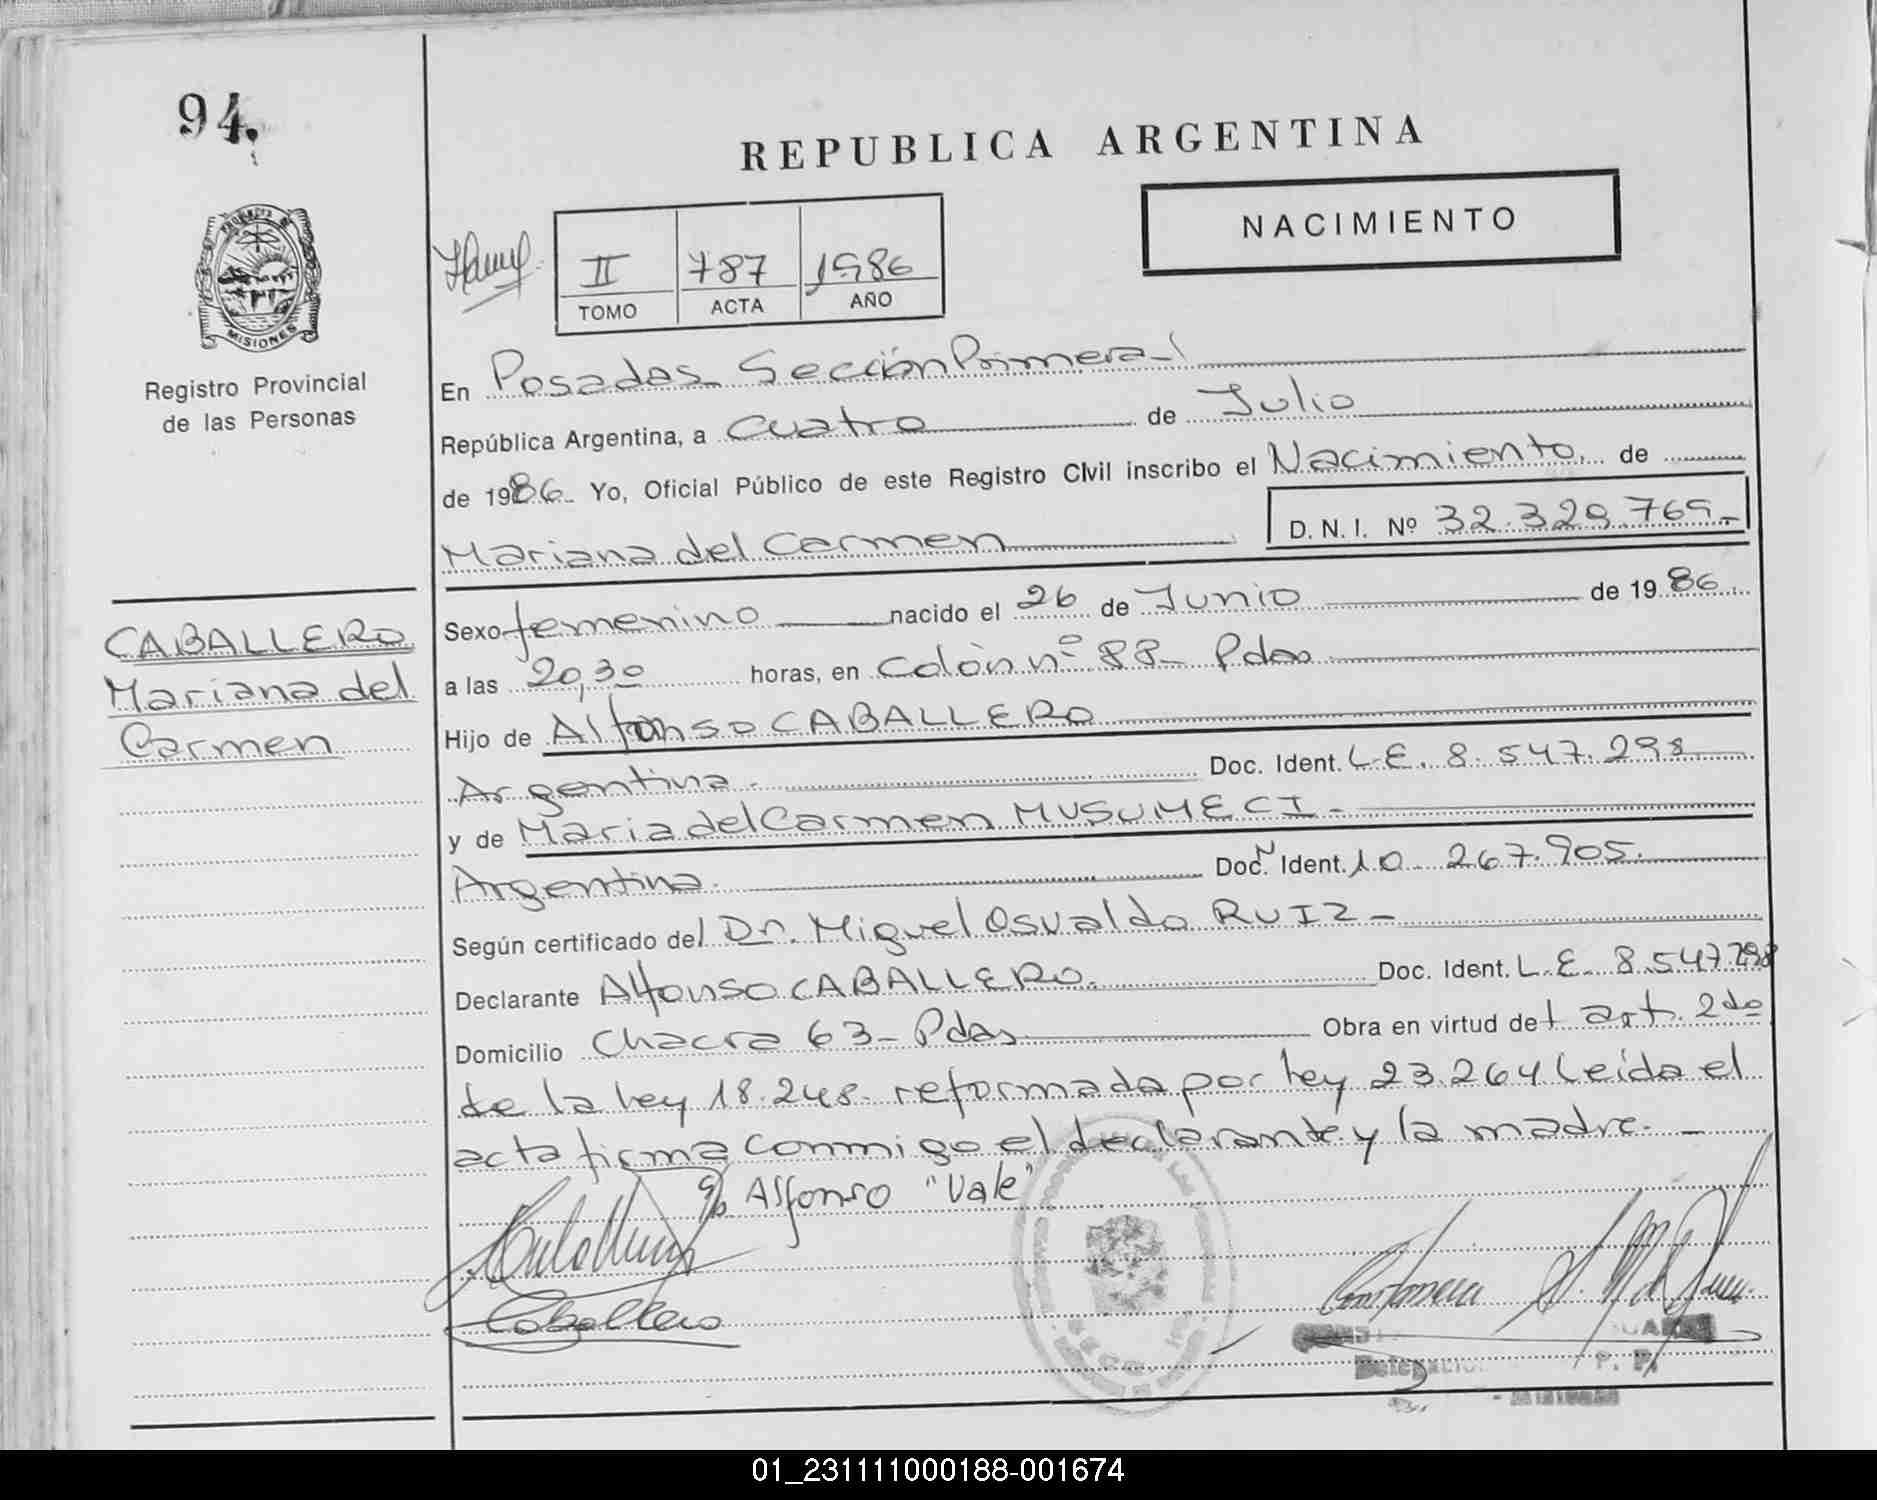 94.
REPUBLICA ARGENTINA
NACIMIENTO
II 787 1986
TOMO ACTA AÑO
PROVINCIA DE
MISIONES
Registro Provincial
de las Personas
En Posadas Sección Primera
República Argentina, a Cuatro de Julio
de 1986 Yo, Oficial Público de este Registro Civil inscribo el Nacimiento de
Mariana del Carmen D.N.I. Nº 32.329.769
CABALLERO
Mariana del
Carmen
Sexo femenino nacido el 26 de Junio de 1986
a las 20,30 horas, en Colón nº 88 Pdas
Hijo de Alfonso CABALLERO
Argentina. Doc. Ident. L.E. 8.547.298
y de Maria del Carmen MUSUMECI
Argentina. Doc. Ident. 10.267.905.
Según certificado del Dr. Miguel Osvaldo RUIZ
Declarante Alfonso CABALLERO. Doc. Ident. L.E. 8.547.298
Domicilio Chacra 63 Pdas Obra en virtud del art. 2do
de la ley 18.248 reformada por ley 23.264 Leída el
acta firma conmigo el declarante y la madre.
Alfonso "Vale"
Caballero
01_231111000188-001674